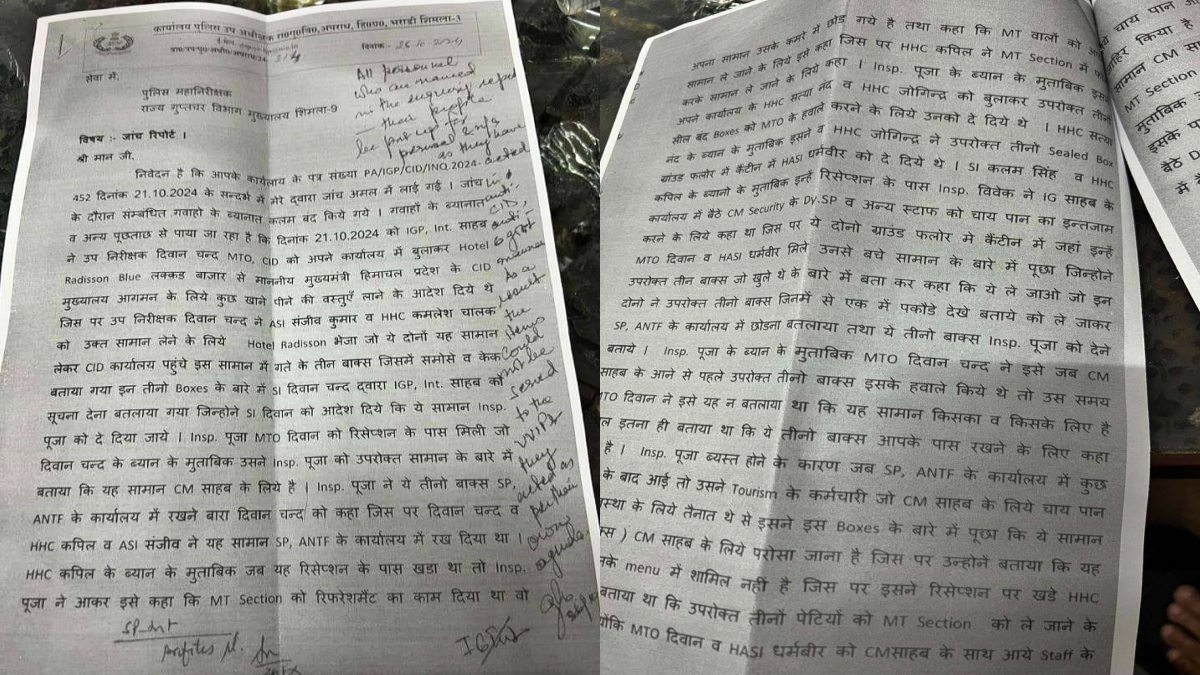 कार्यालय पुलिस उप अधीक्षक रा०गु०वि०,अपराध, हि०प्र०, भराडी शिमला-3
दिनांक:- 25-10-2024
सेवा में,
पुलिस महानिरीक्षक
राज्य गुप्तचर विभाग मुख्यालय शिमला-9
विषय :- जांच रिपोर्ट ।
श्री मान जी,
निवेदन है कि आपके कार्यालय के पत्र संख्या PA/IGP/CID/INQ.2024-
452 दिनांक 21.10.2024 के सन्दर्भ में मेरे द्वारा जांच अमल में लाई गई । जांच
के दौरान संम्बधित गवाहो के ब्यानात कलम बंद किये गये । गवाहों के ब्यानात
व अन्य पूछताछ से पाया जा रहा है कि दिनांक 21.10.2024 को IGP, Int. साहब
ने उप निरीक्षक दिवान चन्द MTO, CID को अपने कार्यालय में बुलाकर Hotel
Radisson Blue लक्कड बाजार से माननीय मुख्यमंत्री हिमाचल प्रदेश के CID
मुख्यालय आगमन के लिये कुछ खाने पीने की वस्तुएँ लाने के आदेश दिये थे
जिस पर उप निरीक्षक दिवान चन्द ने ASI संजीव कुमार व HHC कमलेश चालक
को उक्त सामान लेने के लिये Hotel Radisson भेजा जो ये दोनों यह सामान
लेकर CID कार्यालय पहुंचे इस सामान में गते के तीन बाक्स जिसमें समोसे व केक
बताया गया इन तीनो Boxes के बारे में SI दिवान चन्द द्वारा IGP, Int. साहब को
सूचना देना बतलाया गया जिन्होने SI दिवान को आदेश दिये कि ये सामान Insp.
पूजा को दे दिया जाये । Insp. पूजा MTO दिवान को रिसेप्शन के पास मिली जो
दिवान चन्द के ब्यान के मुताबिक उसने Insp. पूजा को उपरोक्त सामान के बारे में
बताया कि यह सामान CM साहब के लिये है । Insp. पूजा ने ये तीनो बाक्स SP,
ANTF के कार्यालय में रखने बारा दिवान चन्द को कहा जिस पर दिवान चन्द व
HHC कपिल व ASI संजीव ने यह सामान SP, ANTF के कार्यालय में रख दिया था ।
HHC कपिल के ब्यान के मुताबिक जब यह रिसेप्शन के पास खडा था तो Insp.
पूजा ने आकर इसे कहा कि MT Section को रिफरेशमैंट का काम दिया था वो
All personnel
who are named
in the enquiry report
their profiles
be put up for
perusal & n/a
as they have
acted
in
anti-
CID,
anti-
govt
manner
As a
result
the
items
could
not be
served
to the
VVIPs
they
acted as
per their
own
agenda.
अपना सामान उसके कमरे में छोड गये है तथा कहा कि MT वालों को
सामान ले जाने के लिये इसे कहा जिस पर HHC कपिल ने MT Section में
करके सामान ले जाने के लिये कहा । Insp. पूजा के ब्यान के मुताबिक इसने
अपने कार्यालय के HHC सत्या नंद व HHC जोगिन्द्र को बुलाकर उपरोक्त तीनों
सील बंद Boxes को MTO के हवाले करने के लिये उनको दे दिये थे । HHC सत्या
नंद के ब्यान के मुताबिक इसने व HHC जोगिन्द्र ने उपरोक्त तीनो Sealed Box
ग्रांउड फलोर में कैंटीन में HASI धर्मवीर को दे दिये थे । SI कलम सिंह व HHC
कपिल के ब्यानो के मुताबिक इन्हें रिसेप्शन के पास Insp. विवेक ने IG साहब के
कार्यालय में बैठे CM Security के Dy.SP व अन्य स्टाफ को चाय पान का इन्तजाम
करने के लिये कहा था जिस पर ये दोनो ग्राउंड फलोर मे कैंटीन में जहां इन्हें
MTO दिवान व HASI धर्मवीर मिले उनसे बचे सामान के बारे में पूछा जिन्होने
उपरोक्त तीन बाक्स जो खुले थे के बारे में बता कर कहा कि ये ले जाओ जो इन
दोनो ने उपरोक्त तीनो बाक्स जिनमें से एक में पकौडे देखे बताये को ले जाकर
SP, ANTF के कार्यालय में छोडना बतलाया तथा ये तीनो बाक्स Insp. पूजा को देने
बताये । Insp. पूजा के ब्यान के मुताबिक MTO दिवान चन्द ने इसे जब CM
साहब के आने से पहले उपरोक्त तीनो बाक्स इसके हवाले किये थे तो उस समय
दिवान ने इसे यह न बतलाया था कि यह सामान किसका व किसके लिए है
इतना ही बताया था कि ये तीनो बाक्स आपके पास रखने के लिए कहा
है । Insp. पूजा ब्यस्त होने के कारण जब SP, ANTF के कार्यालय में कुछ
के बाद आई तो उसने Tourism के कर्मचारी जो CM साहब के लिये चाय पान
के लिये तैनात थे से इसने इस Boxes के बारे में पूछा कि ये सामान
) CM साहब के लिये परोसा जाना है जिस पर उन्होने बताया कि यह
menu में शामिल नहीं है जिस पर इसने रिसेप्शन पर खडे HHC
बताया था कि उपरोक्त तीनों पेटियों को MT Section को ले जाने के
MTO दिवान व HASI धर्मबीर को CMसाहब के साथ आये Staff के
चाय पान
सामान CM
MT Section